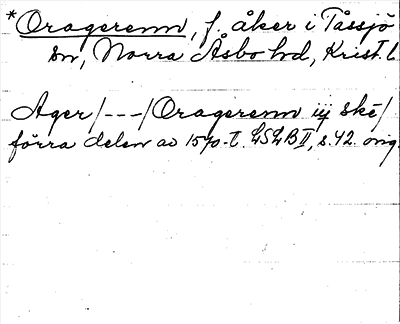 *Oragerenn, f. åker i Tåssjö
sn, Norra Åsbo hd, Krist. l
Ager/---/Oragerenn iij skē/
förra delen av 1570-t. LSLB II, s. 42. orig.